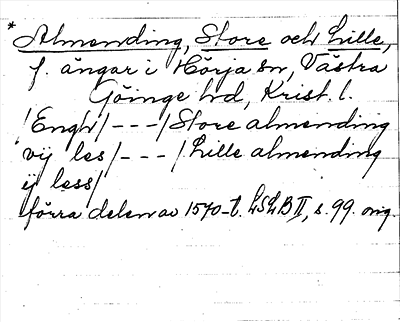 *Almending, Store och Lille,
f. ängar i Hörja sn, Västra
Göinge hd, Krist. l.
/Engh/ - - - /Store almending
vij les/ - - - /Lille almending
ij less/
förra delen av 1570-t. LSLB II, s. 99. orig.